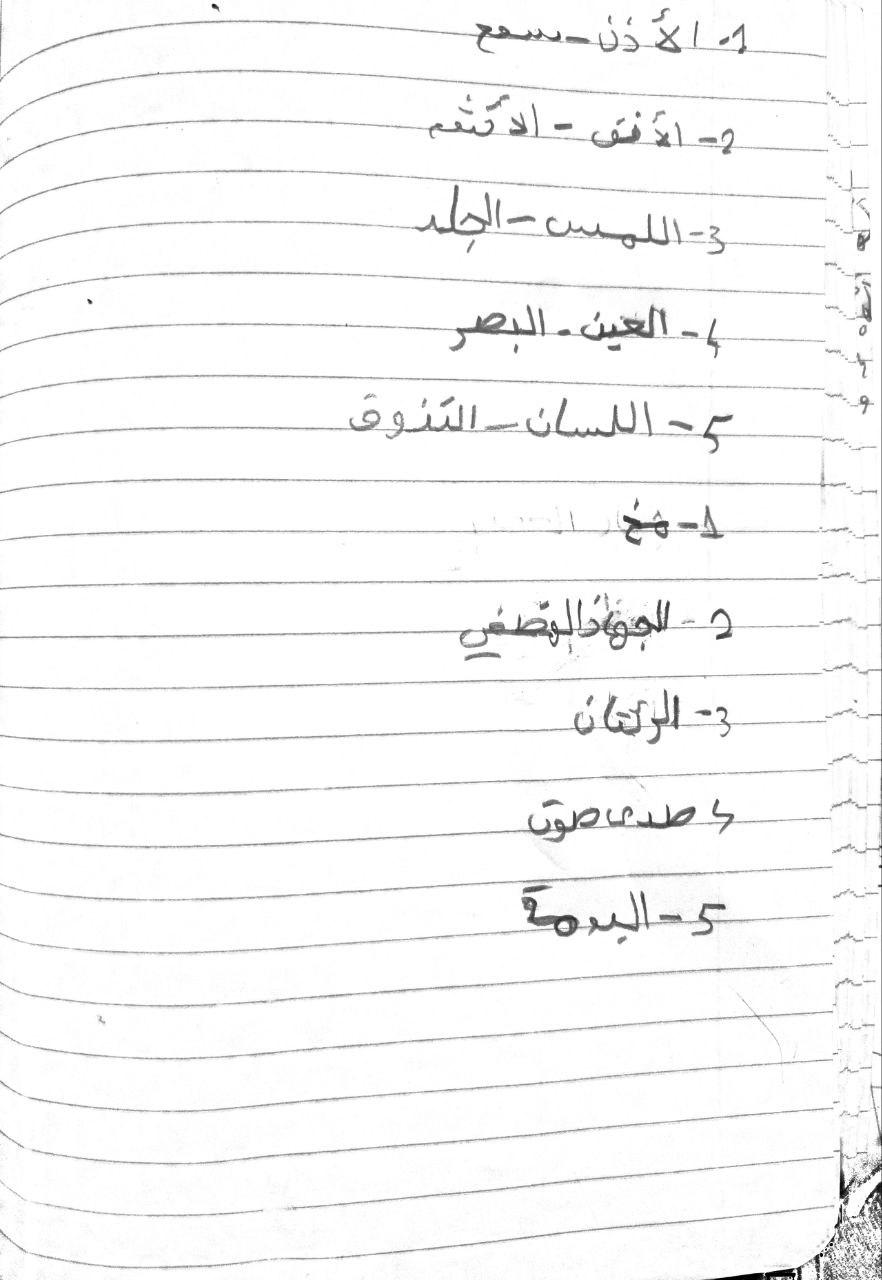 1- الأذن - سمع
2- الأفق - الأكثم
3- اللمس - الجلد
4- العين - البصر
5- اللسان - التذوق
1- مخ
2- الجهاز الهضمي
3- الرئتان
4 صدى صوت
5- البومة